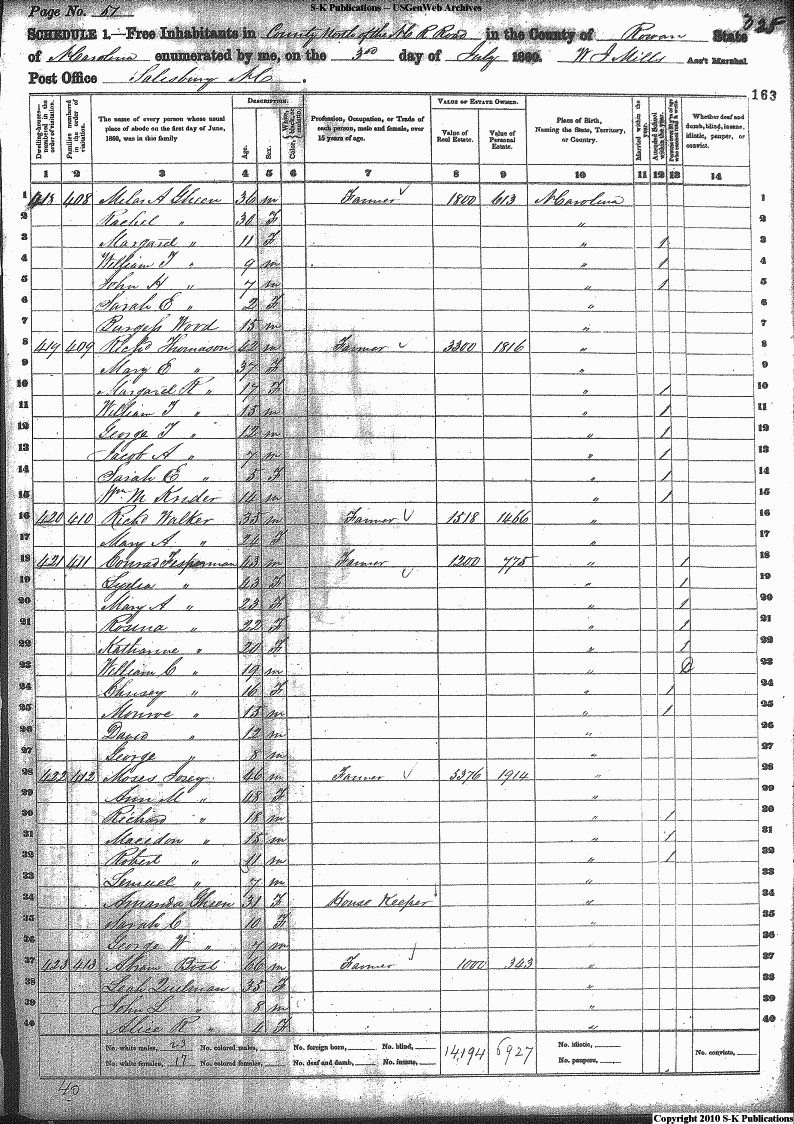 S-K Publications – USGenWeb Archives
Page No. 57
325
SCHEDULE 1.—Free Inhabitants in County North of the N C R Road in the County of Rowan State
of N Carolina enumerated by me, on the 3rd day of July 1860. W J Mills Ass't Marshal
Post Office Salisbury N C.
163
Dwelling-houses—numbered in the order of visitation.
Families numbered in the order of visitation.
The name of every person whose usual place of abode on the first day of June, 1860, was in this family
DESCRIPTION.
Age.
Sex.
Color, White, black, or mulatto.
Profession, Occupation, or Trade of each person, male and female, over 15 years of age.
VALUE OF ESTATE OWNED.
Value of Real Estate.
Value of Personal Estate.
Place of Birth, Naming the State, Territory, or Country.
Married within the year.
Attended School within the year.
Whether deaf and dumb, blind, insane, idiotic, pauper, or convict.
1 2 3 4 5 6 7 8 9 10 11 12 13 14
1 413 408 Milas A Gheen 36 m Farmer 1800 613 N Carolina 1
2 Rachel " 30 F " 2
3 Margard " 11 F " 1 3
4 William T " 9 m " 1 4
5 John H " 7 m " 1 5
6 Sarah E " 2 F " 6
7 Burgess Wood 15 m " 7
8 419 409 Richd Thomason 42 m Farmer 3300 1816 " 8
9 Mary E " 37 F " 9
10 Margard R " 17 F " 1 10
11 William T " 15 m " 1 11
12 George T " 12 m " 1 12
13 Jacob A " 7 m " 1 13
14 Sarah E " 5 F " 1 14
15 Wm M Krider 14 m " 1 15
16 420 410 Richd Walker 35 m Farmer 1518 1466 " 16
17 Mary A " 21 F " 17
18 421 411 Conrad Fesperman 43 m Farmer 1200 775 " 1 18
19 Lydia " 43 F " 1 19
20 Mary A " 23 F " 1 20
21 Rosena " 22 F " 1 21
22 Katharine " 20 F " 1 22
23 William C " 19 m " 23
24 Chrisey " 16 F " 1 24
25 Monroe " 15 m " 1 25
26 David " 12 m " 26
27 George " 8 m " 27
28 422 412 Moses Josey 46 m Farmer 5376 1914 " 28
29 Ann M " 48 F " 29
30 Richard " 18 m " 1 30
31 Macidon " 15 m " 1 31
32 Robert " 11 m " 1 32
Lemuel " 7 m " 33
34 Amanda Gheen 31 F House Keeper " 34
35 Sarah C 10 F " 35
36 George W " 7 m " 36
37 423 413 Abram Bost 66 m Farmer 1000 343 " 37
38 Leah Quelman 35 F " 38
39 John L " 8 m " 39
40 Alice R " 4 F " 40
No. white males, 23 No. colored males, No. foreign born, No. blind, 14,194 6927 No. idiotic,
No. white females, 17 No. colored females, No. deaf and dumb, No. insane, No. paupers, No. convicts,
40
Copyright 2010 S-K Publications